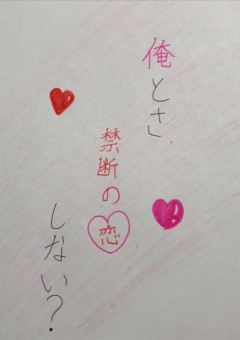 俺とさ、
禁断の恋
しない?